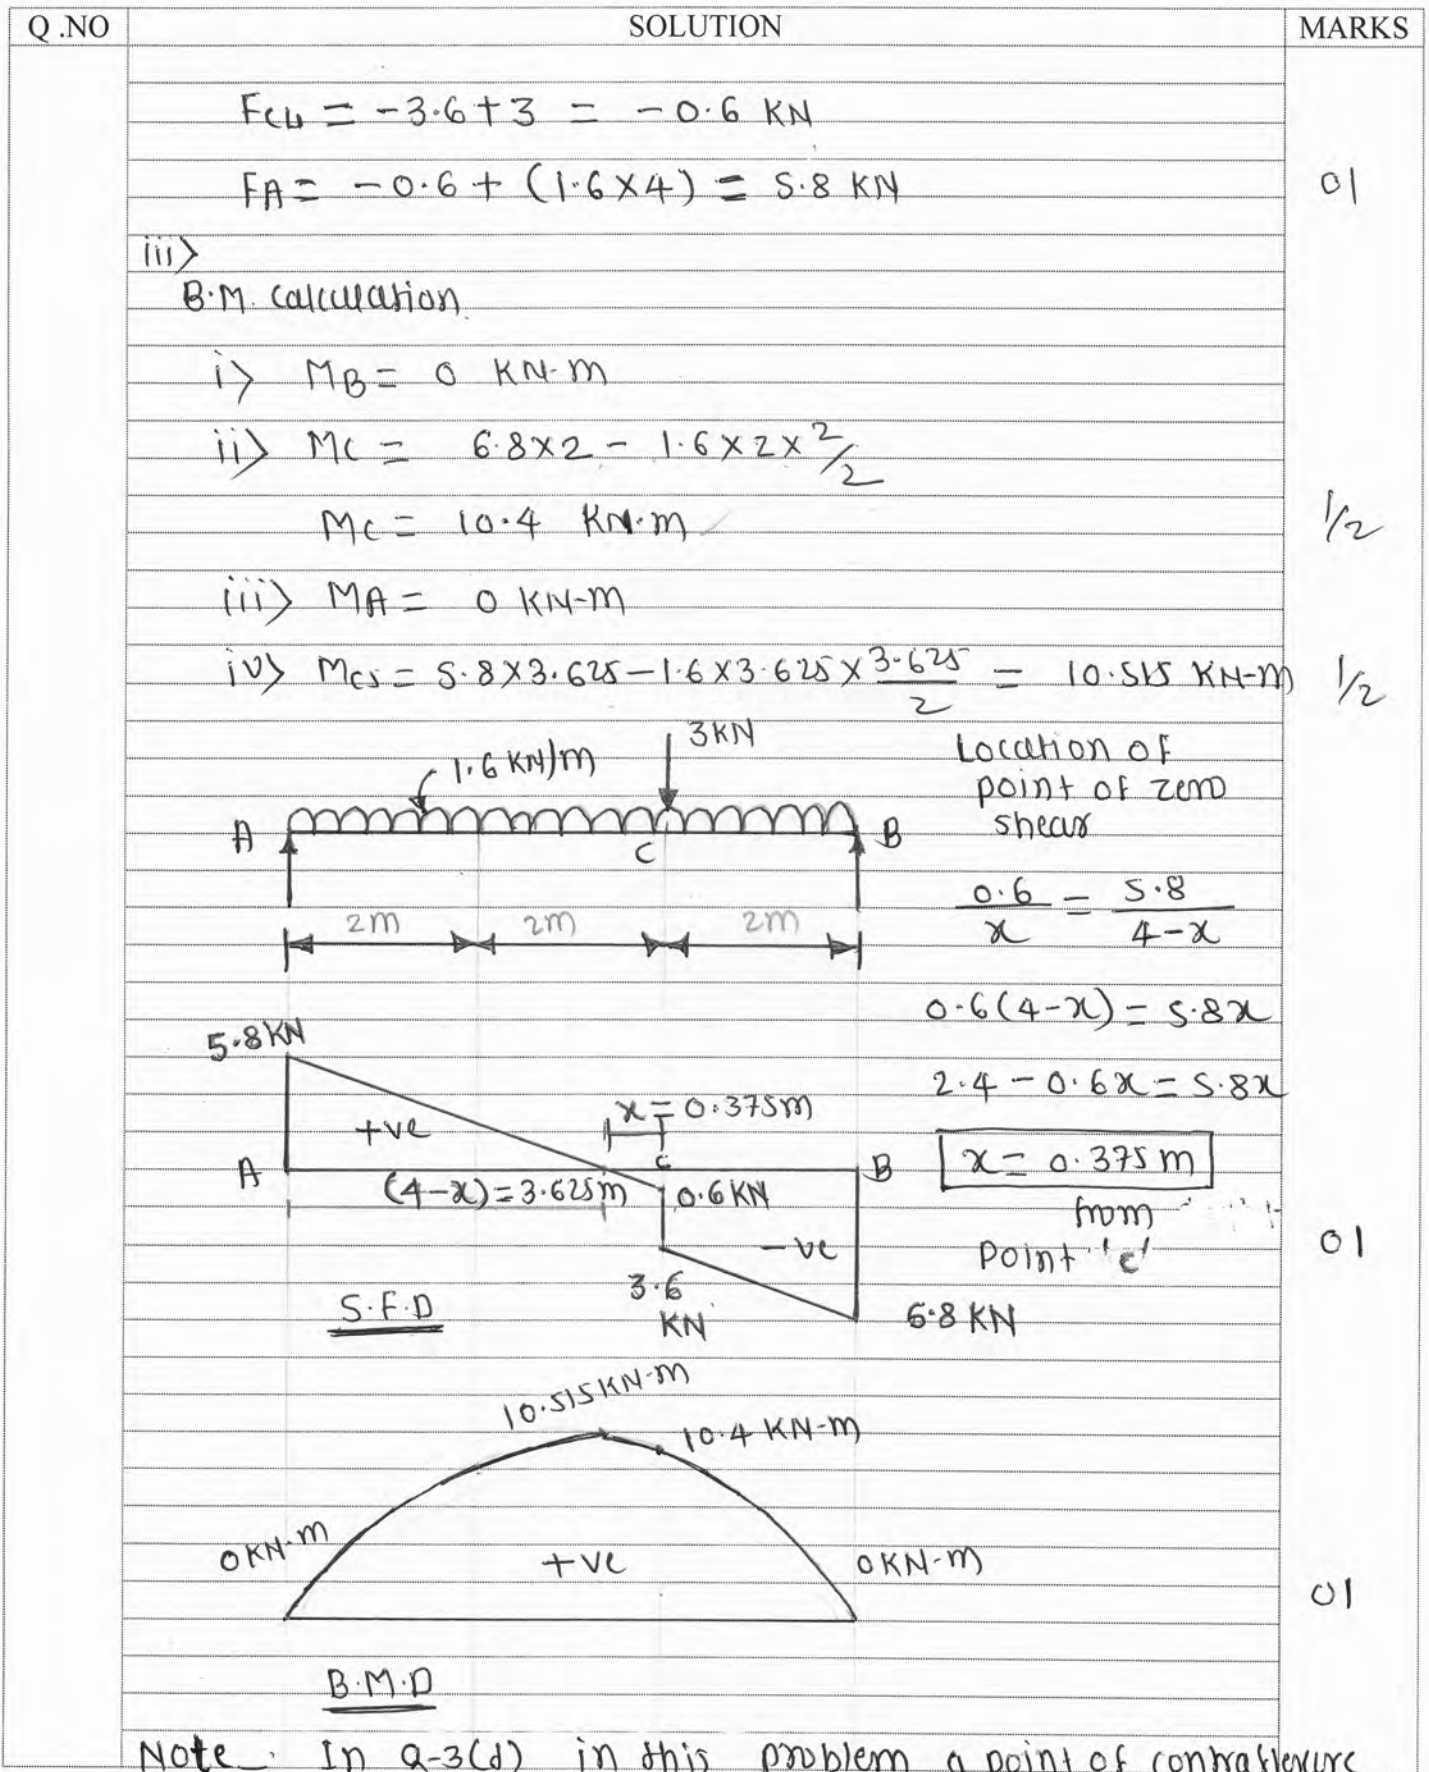 Q .NO SOLUTION MARKS
FCL = -3.6+3 = -0.6 KN
FA = -0.6 + (1.6×4) = 5.8 KN 01
iii>
B.M. Calculation.
i> MB = 0 KN-m
ii> MC = 6.8×2 - 1.6×2×2/2
MC = 10.4 KN.m 1/2
iii> MA = 0 KN-m
iv> MCS = 5.8×3.625-1.6×3.625×3.625/2 = 10.515 KN-m 1/2
1.6 KN/m 3KN
A C B
2m 2m 2m
Location of
point of zero
shear
0.6/x = 5.8/4-x
0.6(4-x) = 5.8x
2.4-0.6x = 5.8x
x = 0.375 m
from
Point 'c' 01
5.8KN
+ve x = 0.375m
A c B
(4-x)=3.625m 0.6KN
-ve
3.6
KN
6.8 KN
S.F.D
10.515KN-m
10.4 KN-m
0KN-m +ve 0KN-m 01
B.M.D
Note - In Q-3(d) in this problem a point of contraflexure